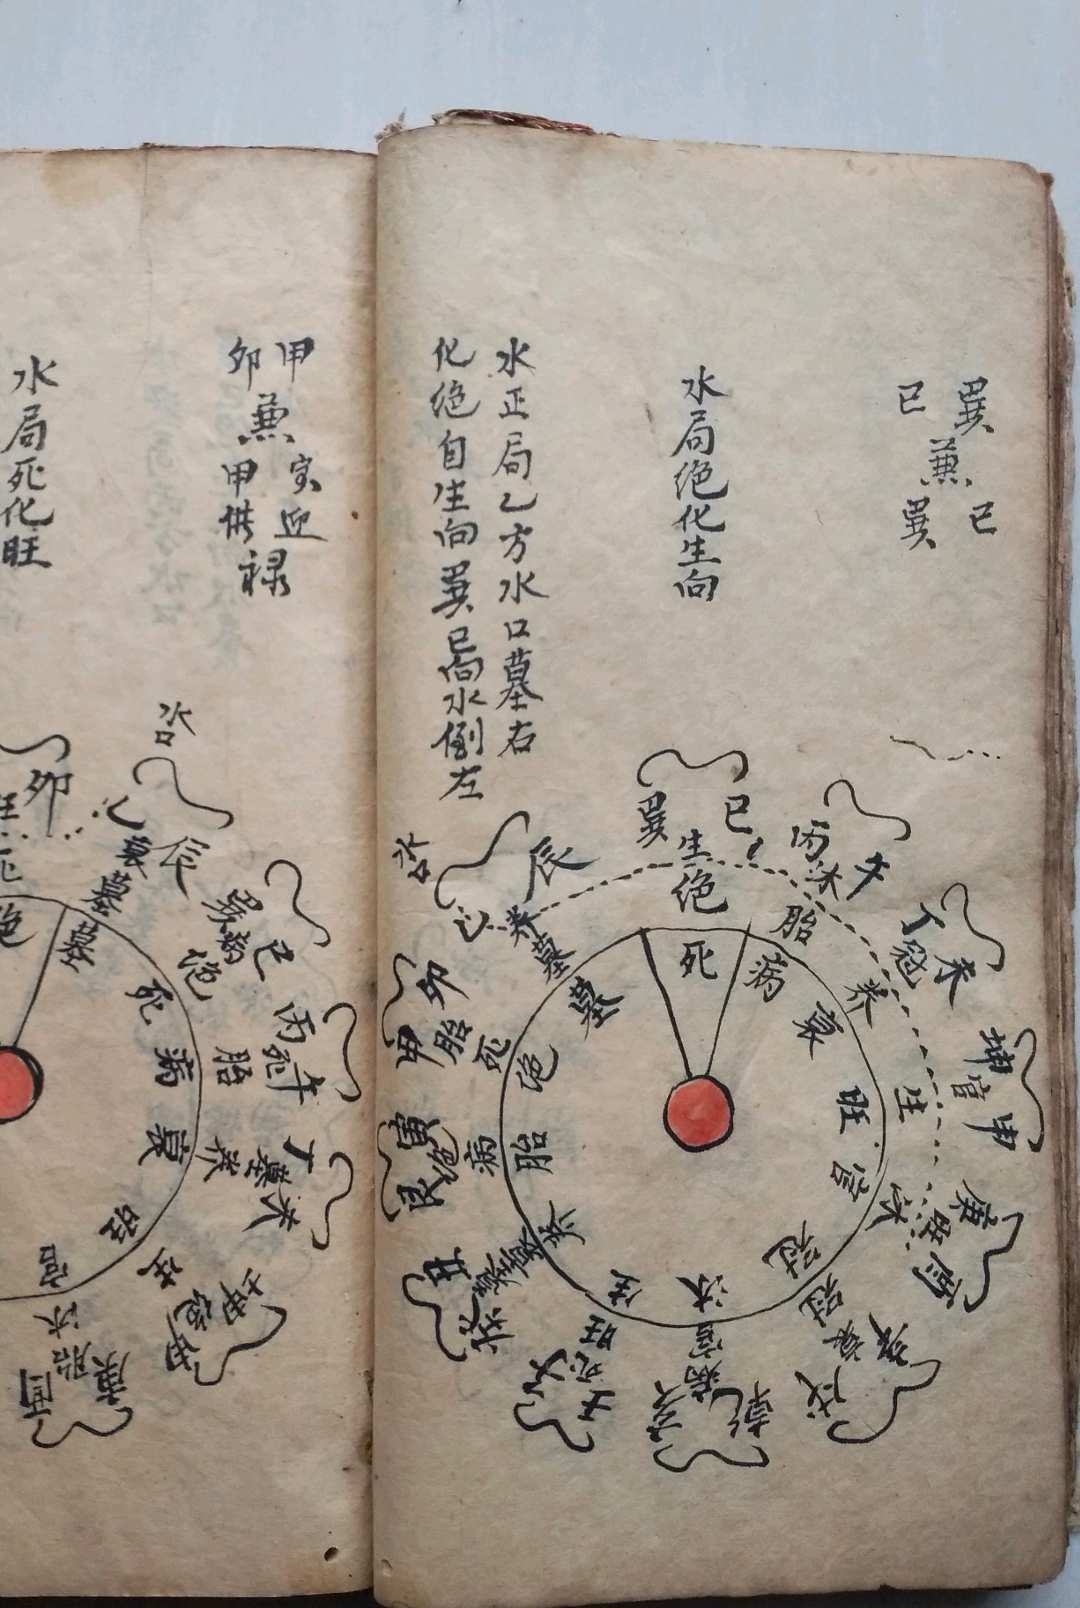 巽 巳
兼
巳 巽
水局绝化生向
水正局乙方水口墓右
化绝自生向巽巳向水倒左
水口
辰
乙
养
墓
墓
巽 巳
生
绝
死
丙 午
沐
胎
病
丁 未
冠
养
衰
坤 申
官
生
旺
庚 酉
旺
沐
官
戌
冠
冠
乾 亥
病
官
沐
壬
死
旺
生
丑
墓
养
艮 寅
绝
病
胎
甲 卯
胎
死
绝
甲 寅迎
卯 兼 禄
甲供
水局死化旺
水口
卯
乙 辰
衰
墓
墓
绝
巽 巳
病
绝
死
丙 午
死
胎
病
丁 未
墓
养
衰
坤 申
绝
生
旺
庚 酉
胎
沐
官